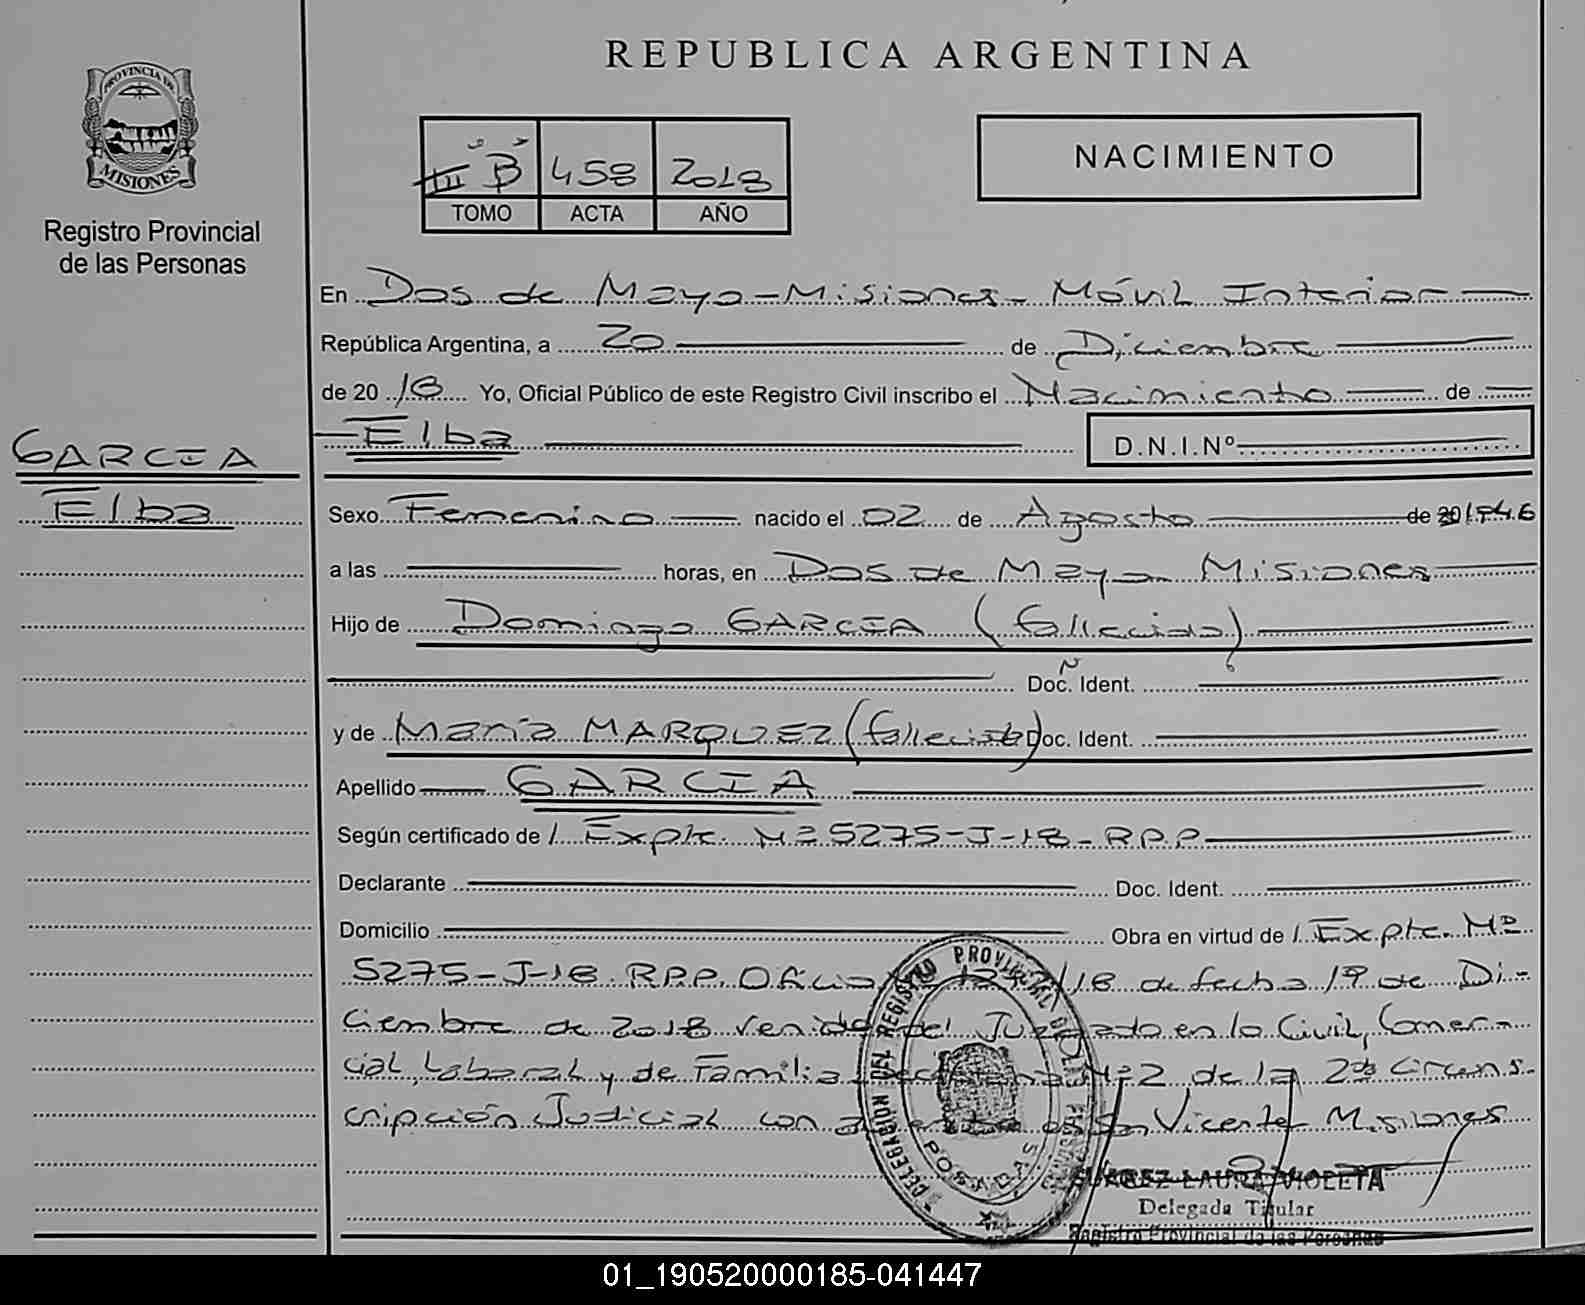 REPUBLICA ARGENTINA
PROVINCIA DE
MISIONES
Registro Provincial
de las Personas
III "B" 458 2018
TOMO ACTA AÑO
NACIMIENTO
En Dos de Mayo - Misiones - Móvil Interior
República Argentina, a 20 de Diciembre
de 2018 Yo, Oficial Público de este Registro Civil inscribo el Nacimiento de
Elba D.N.I.Nº
GARCIA
Elba
Sexo Femenino nacido el 02 de Agosto de 1946
a las horas, en Dos de Mayo Misiones
Hijo de Domingo GARCIA (fallecido)
Doc. Ident.
y de María MARQUEZ (fallecida) Doc. Ident.
Apellido GARCIA
Según certificado de / Expte. Nº 5275-J-18-R.P.P
Declarante Doc. Ident.
Domicilio Obra en virtud de / Expte. Nº
5275-J-18 R.P.P. Oficio /18 de fecha 19 de Di-
ciembre de 2018 venido del Juzgado en lo Civil, Comer-
cial, Laboral y de Familia Nº 2 de la 2da Circuns-
cripción Judicial con en San Vicente Misiones
DELEGACION DEL REGISTRO PROVINCIAL DE LAS PERSONAS
POSADAS
SUAREZ LAURA VIOLETA
Delegada Titular
Registro Provincial de las Personas
01_190520000185-041447